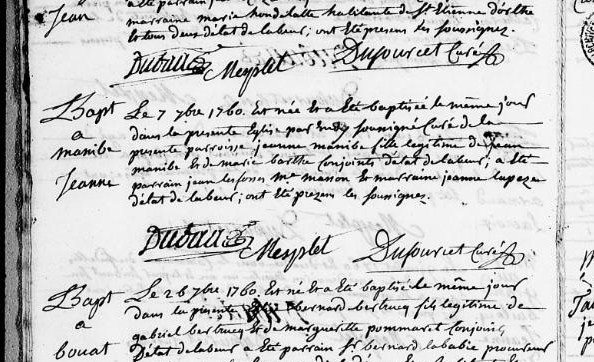 Jean
marraine marie hondelatte habitante de St Etienne d'orthe
le tous deux d'état de labeur, ont été presens les soussignez.
Dubau Mesplet Dufourcet Curé
Bapt
a
manibe
Jeanne
Le 7 7bre 1760. Est née et a Eté baptisée le même jour
dans la presente Eglise par soussigné Curé de la
presente parroisse jeanne manibe fille legitime de Jean
manibe et de marie barthe conjoints d'etat de labeur, a Eté
parrain jean Me masson et marraine jeanne lapeze
d'état de labeur, ont Eté presens les soussignez.
Dubau Mesplet Dufourcet Curé
Bapt
a
bouat
Le 26 7bre 1760. Est né et a Eté baptisé le même jour
dans la presente bernard bertrucq fils legitime de
gabriel bertrucq & de marguerite pommaret conjoins
d'état de labeur a Eté parrain Sr bernard lababie procureur